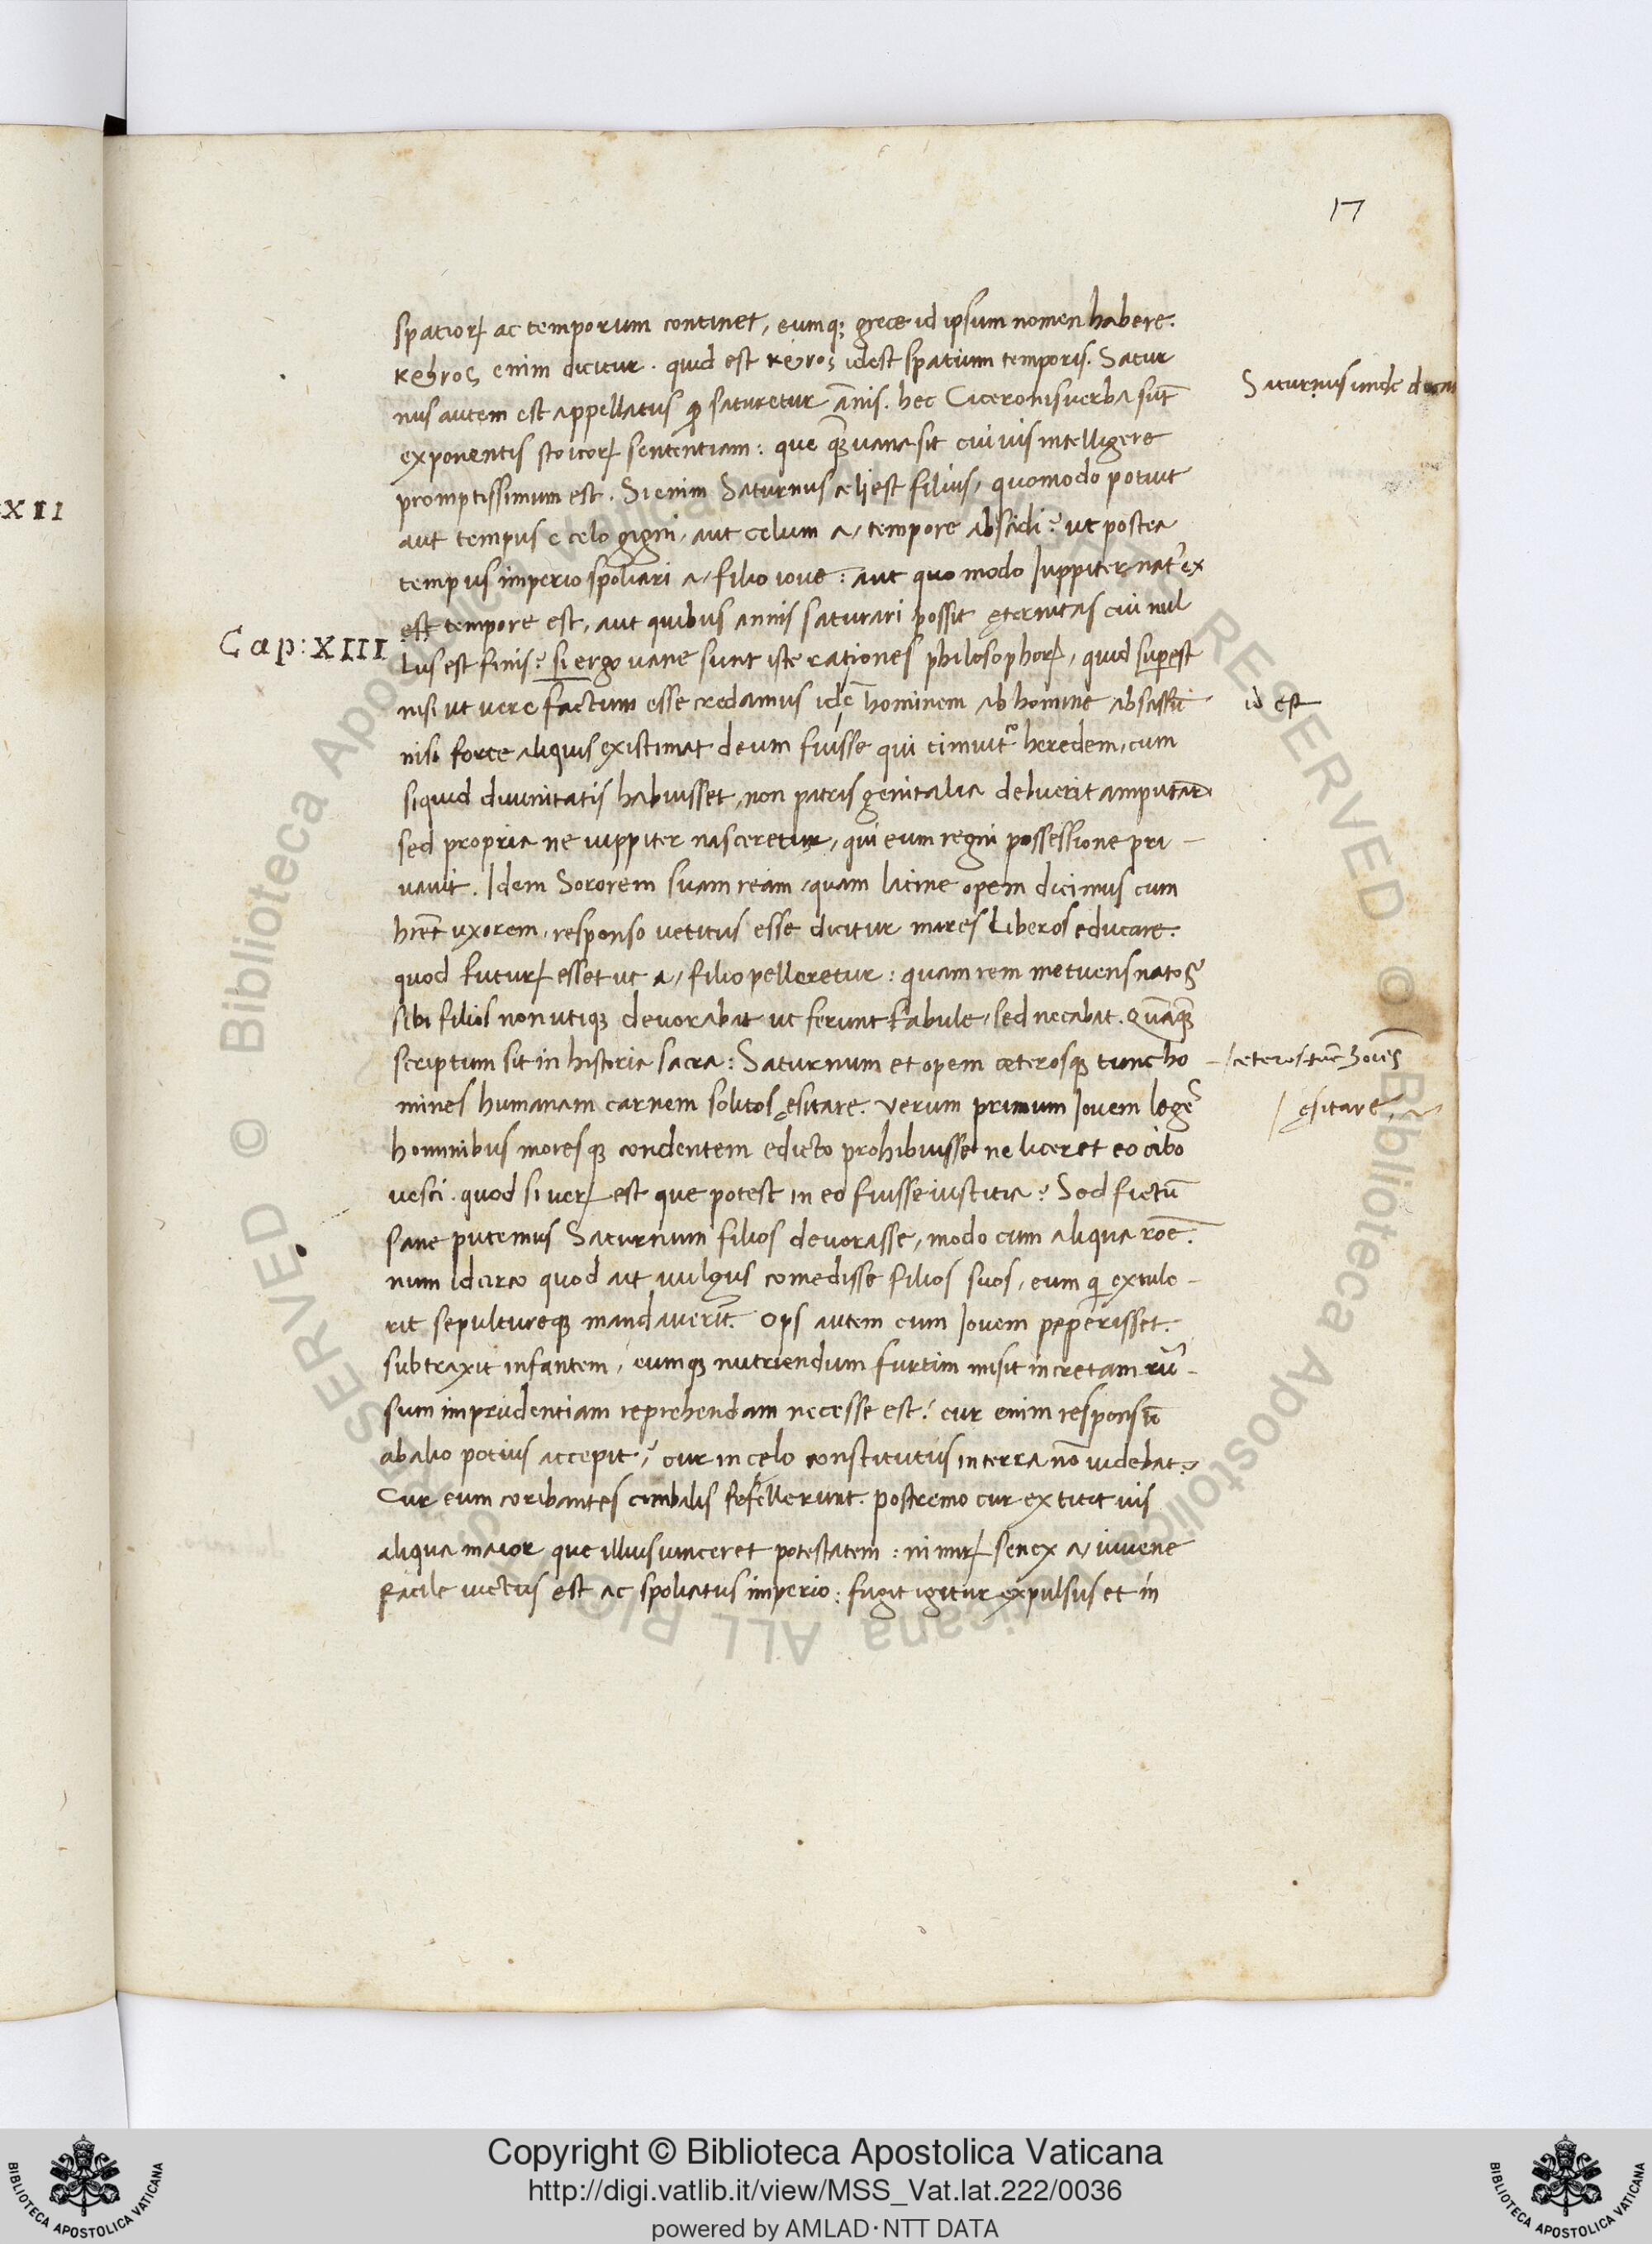 17
spatioꝝ ac temporum continet, eumqꝫ grece id ipsum nomen habere.
enim dicitur. quid est idest spatium temporis. Satur
Saturnus unde
nus autem est appellatus ꝙ saturetur ãnis. hec Ciceronis uerba sũt
exponentis stoicoꝝ sententiam: que ꝙ̃ uana sit cuiuis intelligere
promptissimum est. Si enim Saturnus celi est filius, quomodo potuit
XII
aut tempus e celo gigni, aut celum a, tempore abscidi? ut postea
tempus imperio spoliari a, filio ioue: aut quo modo Iuppiter nat᾽ ex
est tempore est, aut quibus annis saturari possit ęternitas cui nul
Cap: XIII
lus est finis? si ergo uane sunt iste rationes philosophoꝝ, quid superest
nisi ut uere factum esse credamus idẽ hominem ab homine abscissũ
id est
nisi forte aliquis existimat deum fuisse qui timuit heredem, cum
siquid diuinitatis habuisset, non patris genitalia debuerit amputare
sed propria ne iuppiter nasceretur, qui eum regni possessione pri-
uauit. Idem Sororem suam ream, quam latine opem dicimus cum
hret̃ uxorem, responso uetitus esse dicitur mares liberos educare.
quod futuꝝ esset ut a, filio pelleretur: quam rem metuens natos
sibi filios non utiqꝫ deuorabat ut ferunt fabule, sed necabat. Quãqꝫ̃
scriptum sit in historia sacra: Saturnum et opem ceterosqꝫ tunc ho-
ceteros tũc hoies
mines humanam carnem solitos ęsitare. Verum primum Iouem leges
ęsitare
hominibus moresqꝫ condentem edicto prohibuisse ne liceret eo cibo
uesci. quod si ueꝝ est que potest in eo fuisse iustitia? Sed fictũ
sane putemus Saturnum filios deuorasse, modo cum aliqua roẽ.
num idcirco quod ait uulgus comedisse filios suos, eum qi extule-
rit sepultureqꝫ mandauerit. Ops autem cum Iouem peperisset.
subtraxit infantem, eumqꝫ nutriendum furtim misit in cretam rũ-
sum imprudentiam reprehendam necesse est? cur enim responsũ
ab alio potius accepit? cur in cęlo constitutus in terra nõ uidebat?
Cur eum coribantes cimbalis fefellerunt. postremo cur extitit uis
aliqua maior que illius uinceret potestatem: nimiꝝ senex a, iuuene
facile uictus est ac spoliatus imperio: fugit igitur expulsus et in
Copyright © Biblioteca Apostolica Vaticana
http://digi.vatlib.it/view/MSS_Vat.lat.222/0036
powered by AMLAD·NTT DATA
BIBLIOTECA APOSTOLICA VATICANA
BIBLIOTECA APOSTOLICA VATICANA
© Biblioteca Apostolica Vaticana ALL RIGHTS RESERVED © Biblioteca Apostolica Vaticana ALL RIGHTS RESERVED